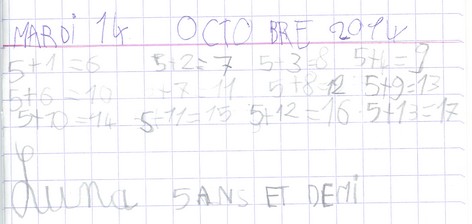 MARDI 14 OCTOBRE 2014
5+1=6 5+2=7 5+3=8 5+4=9
5+6=10 +7=11 5+8=12 5+9=13
5+10=14 5+11=15 5+12=16 5+13=17
Luna 5 ANS ET DEMI